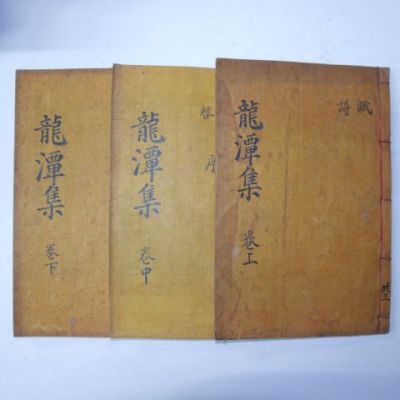 龍潭集 卷上
賦
詩
共三
龍潭集 卷中
啓
序
龍潭集 卷下